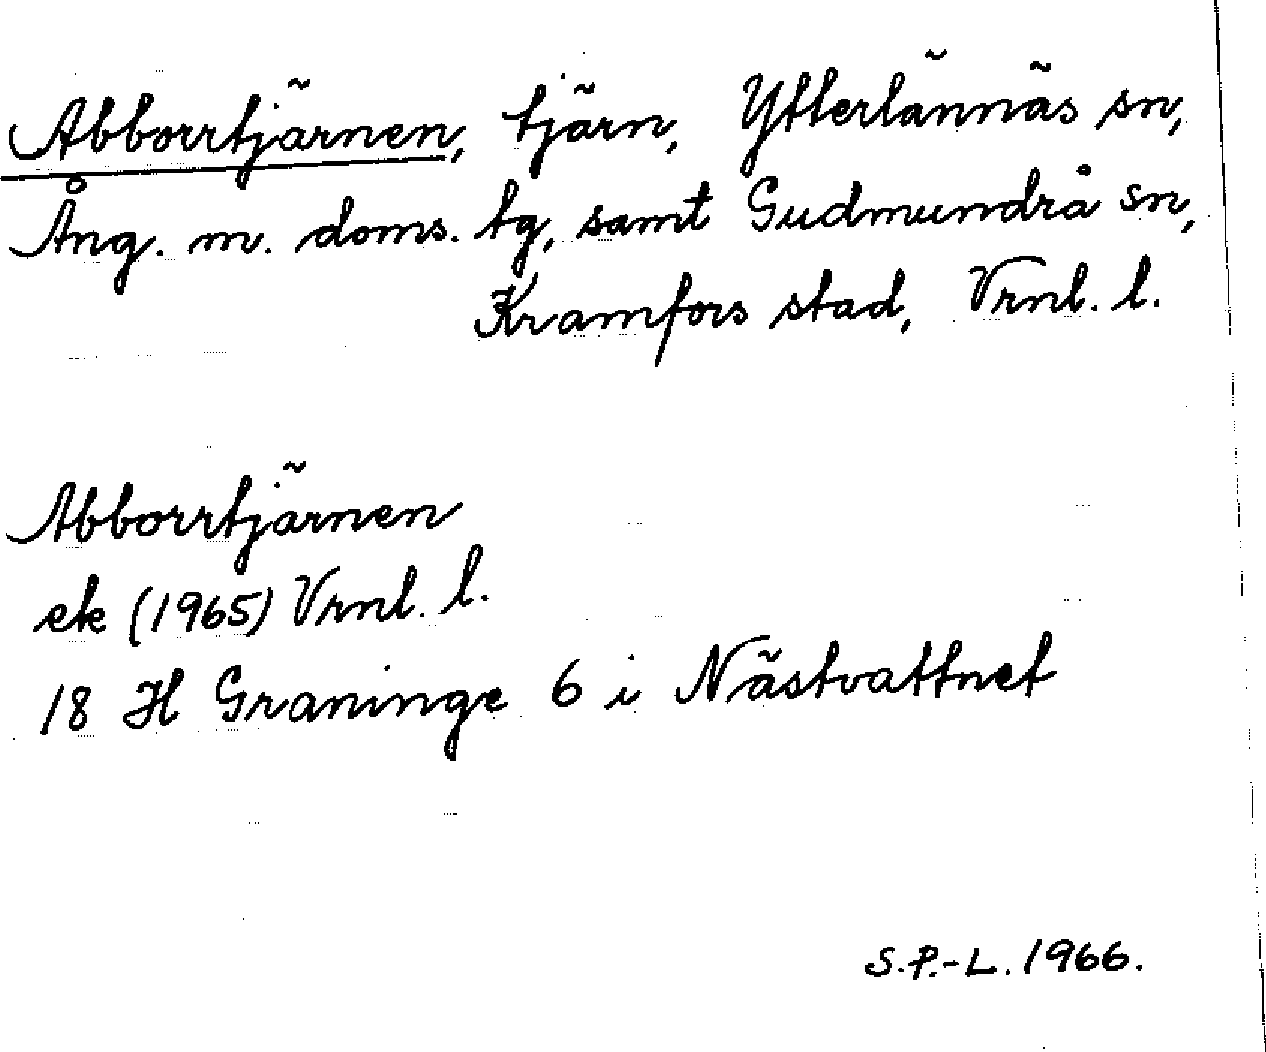 Abborrtjärnen, tjärn, Ytterlännäs sn,
Ång. m. doms. tg, samt Gudmundrå sn,
Kramfors stad, Vrnl. l.
Abborrtjärnen
ek (1965) Vrnl. l.
18 H Graninge 6 i Nästvattnet
S.P.-L. 1966.